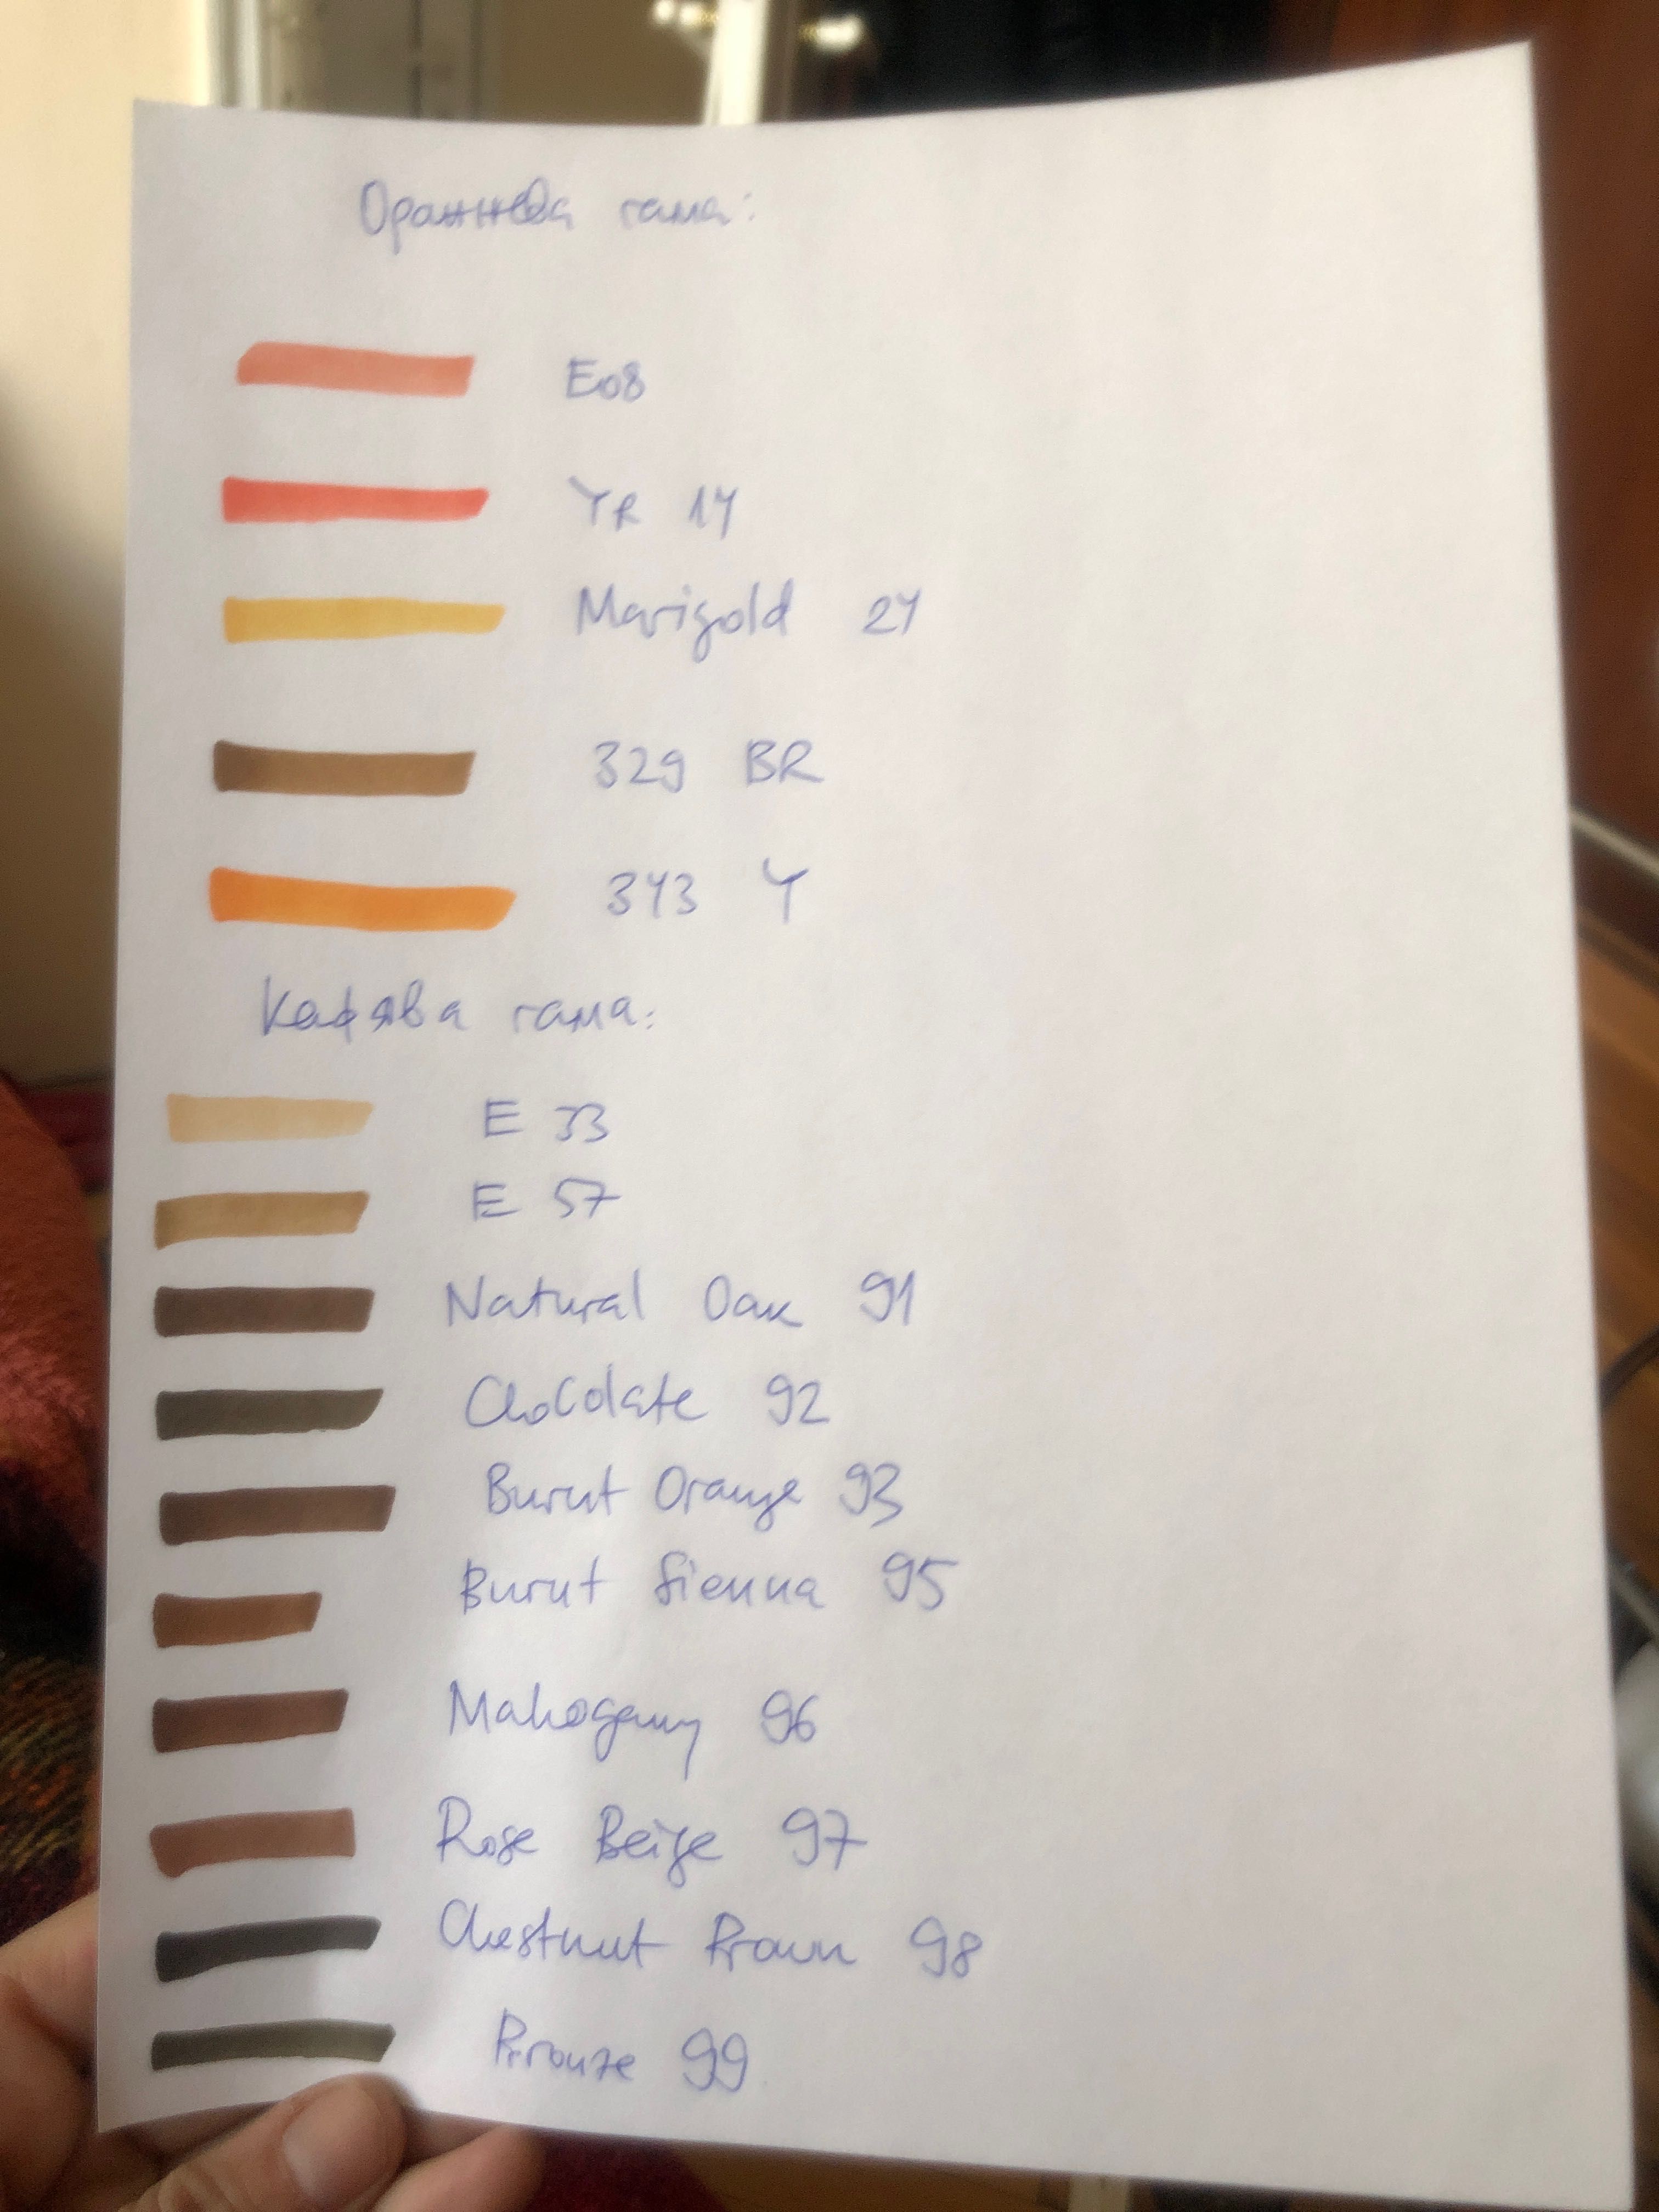 Оранжева гама:
E08
YR 14
Marigold 24
329 BR
343 Y
Кафява гама:
E 33
E 57
Natural Oak 91
Chocolate 92
Burnt Orange 93
Burnt Sienna 95
Mahogany 96
Rose Beige 97
Chestnut Brown 98
Bronze 99